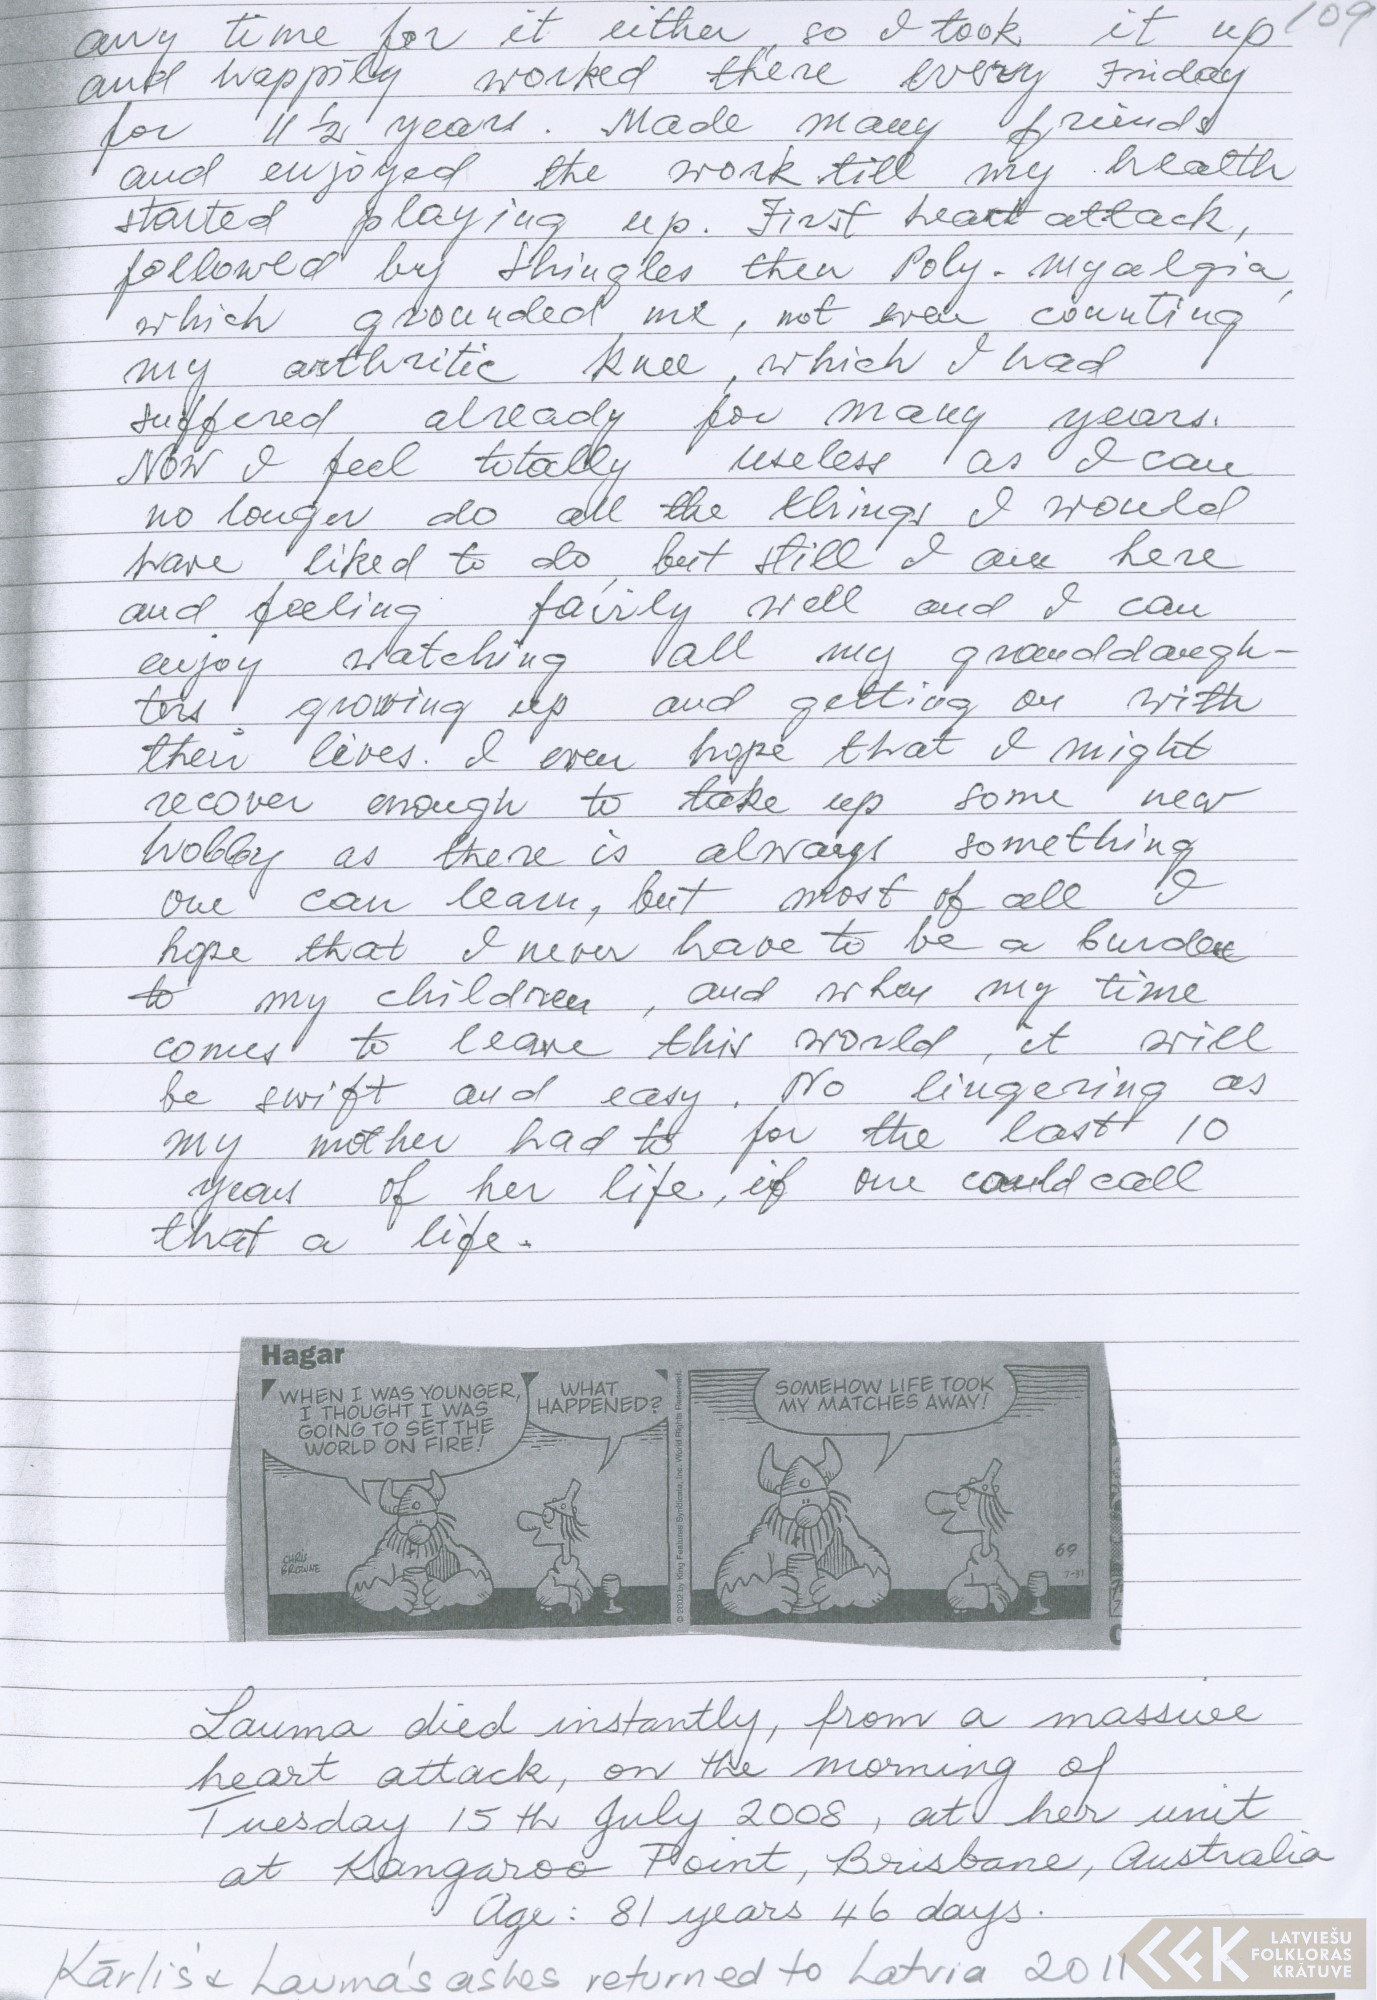 109
any time for it either, so I took it up
and happily worked there every Friday
for 11 ½ years. Made many friends
and enjoyed the work till my health
started playing up. First heart attack,
followed by Shingles then Poly-Myalgia,
which grounded me, not even counting
my arthritic knee, which I had
suffered already for many years.
Now I feel totally useless as I can
no longer do all the things I would
have liked to do, but still I am here
and feeling fairly well and I can
enjoy watching all my granddaugh-
ters growing up and getting on with
their lives. I even hope that I might
recover enough to take up some new
hobby as there is always something
one can learn, but most of all I
hope that I never have to be a burden
to my children, and when my time
comes to leave this world, it will
be swift and easy. No lingering as
my mother had to for the last 10
years of her life, if one could call
that a life.
Hagar
WHEN I WAS YOUNGER,
I THOUGHT I WAS
GOING TO SET THE
WORLD ON FIRE!
WHAT
HAPPENED?
SOMEHOW LIFE TOOK
MY MATCHES AWAY!
CHRIS
BROWNE
© 2002 by King Features Syndicate, Inc. World Rights Reserved.
69
7-31
Lauma died instantly, from a massive
heart attack, on the morning of
Tuesday 15th July 2008, at her unit
at Kangaroo Point, Brisbane, Australia
Age: 81 years 46 days.
Kārlis & Lauma's ashes returned to Latvia 2011
LATVIEŠU
FOLKLORAS
KRĀTUVE